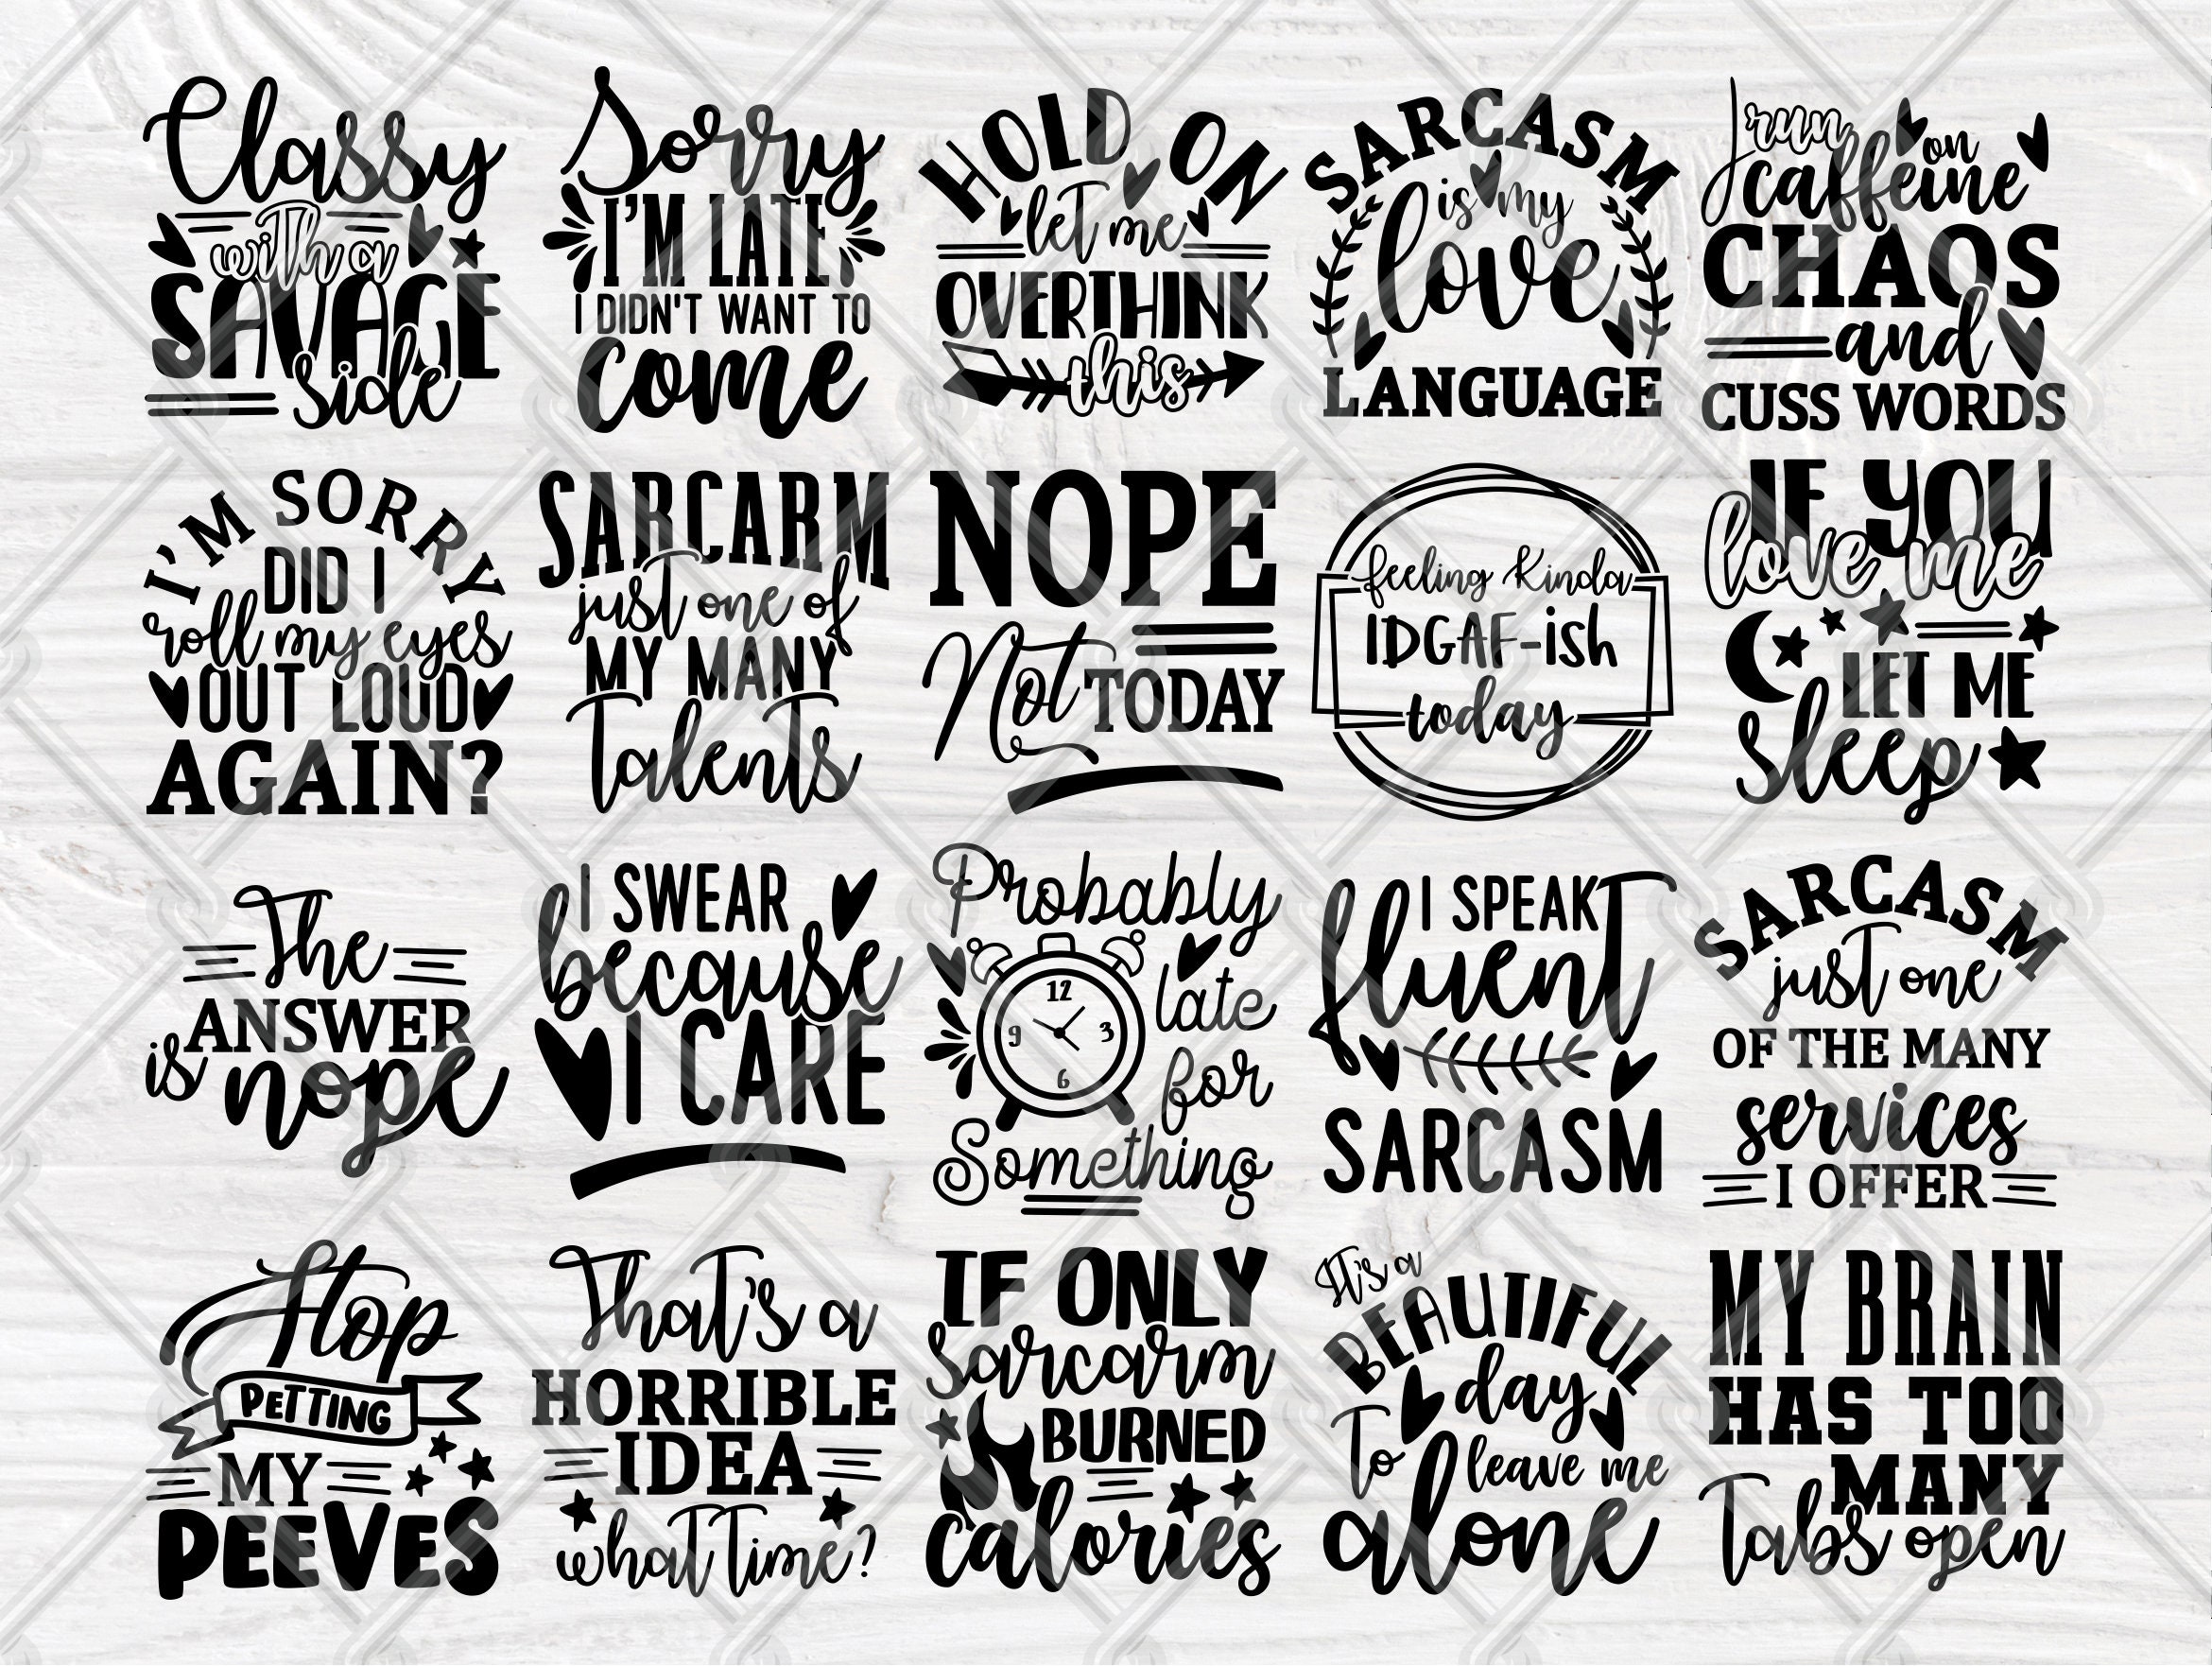 Classy
with a
SAVAGE
side
Sorry
I'M LATE
I DIDN'T WANT TO
come
HOLD ON
let me
OVERTHINK
this
SARCASM
is my
love
LANGUAGE
I run on
caffeine
CHAOS
and
CUSS WORDS
I'M SORRY
DID I
roll my eyes
OUT LOUD
AGAIN?
SARCARM
just one of
MY MANY
Talents
NOPE
Not TODAY
feeling Kinda
IDGAF-ish
today
IF YOU
love me
LET ME
Sleep
The
ANSWER
is nope
I SWEAR
because
I CARE
Probably
late
12
9 3
6
for
Something
I SPEAK
fluent
SARCASM
SARCASM
just one
OF THE MANY
services
I OFFER
Stop
PETTING
MY
PEEVES
That's a
HORRIBLE
IDEA
what Time?
IF ONLY
Sarcarm
BURNED
calories
It's a
BEAUTIFUL
day
To leave me
alone
MY BRAIN
HAS TOO
MANY
Tabs open